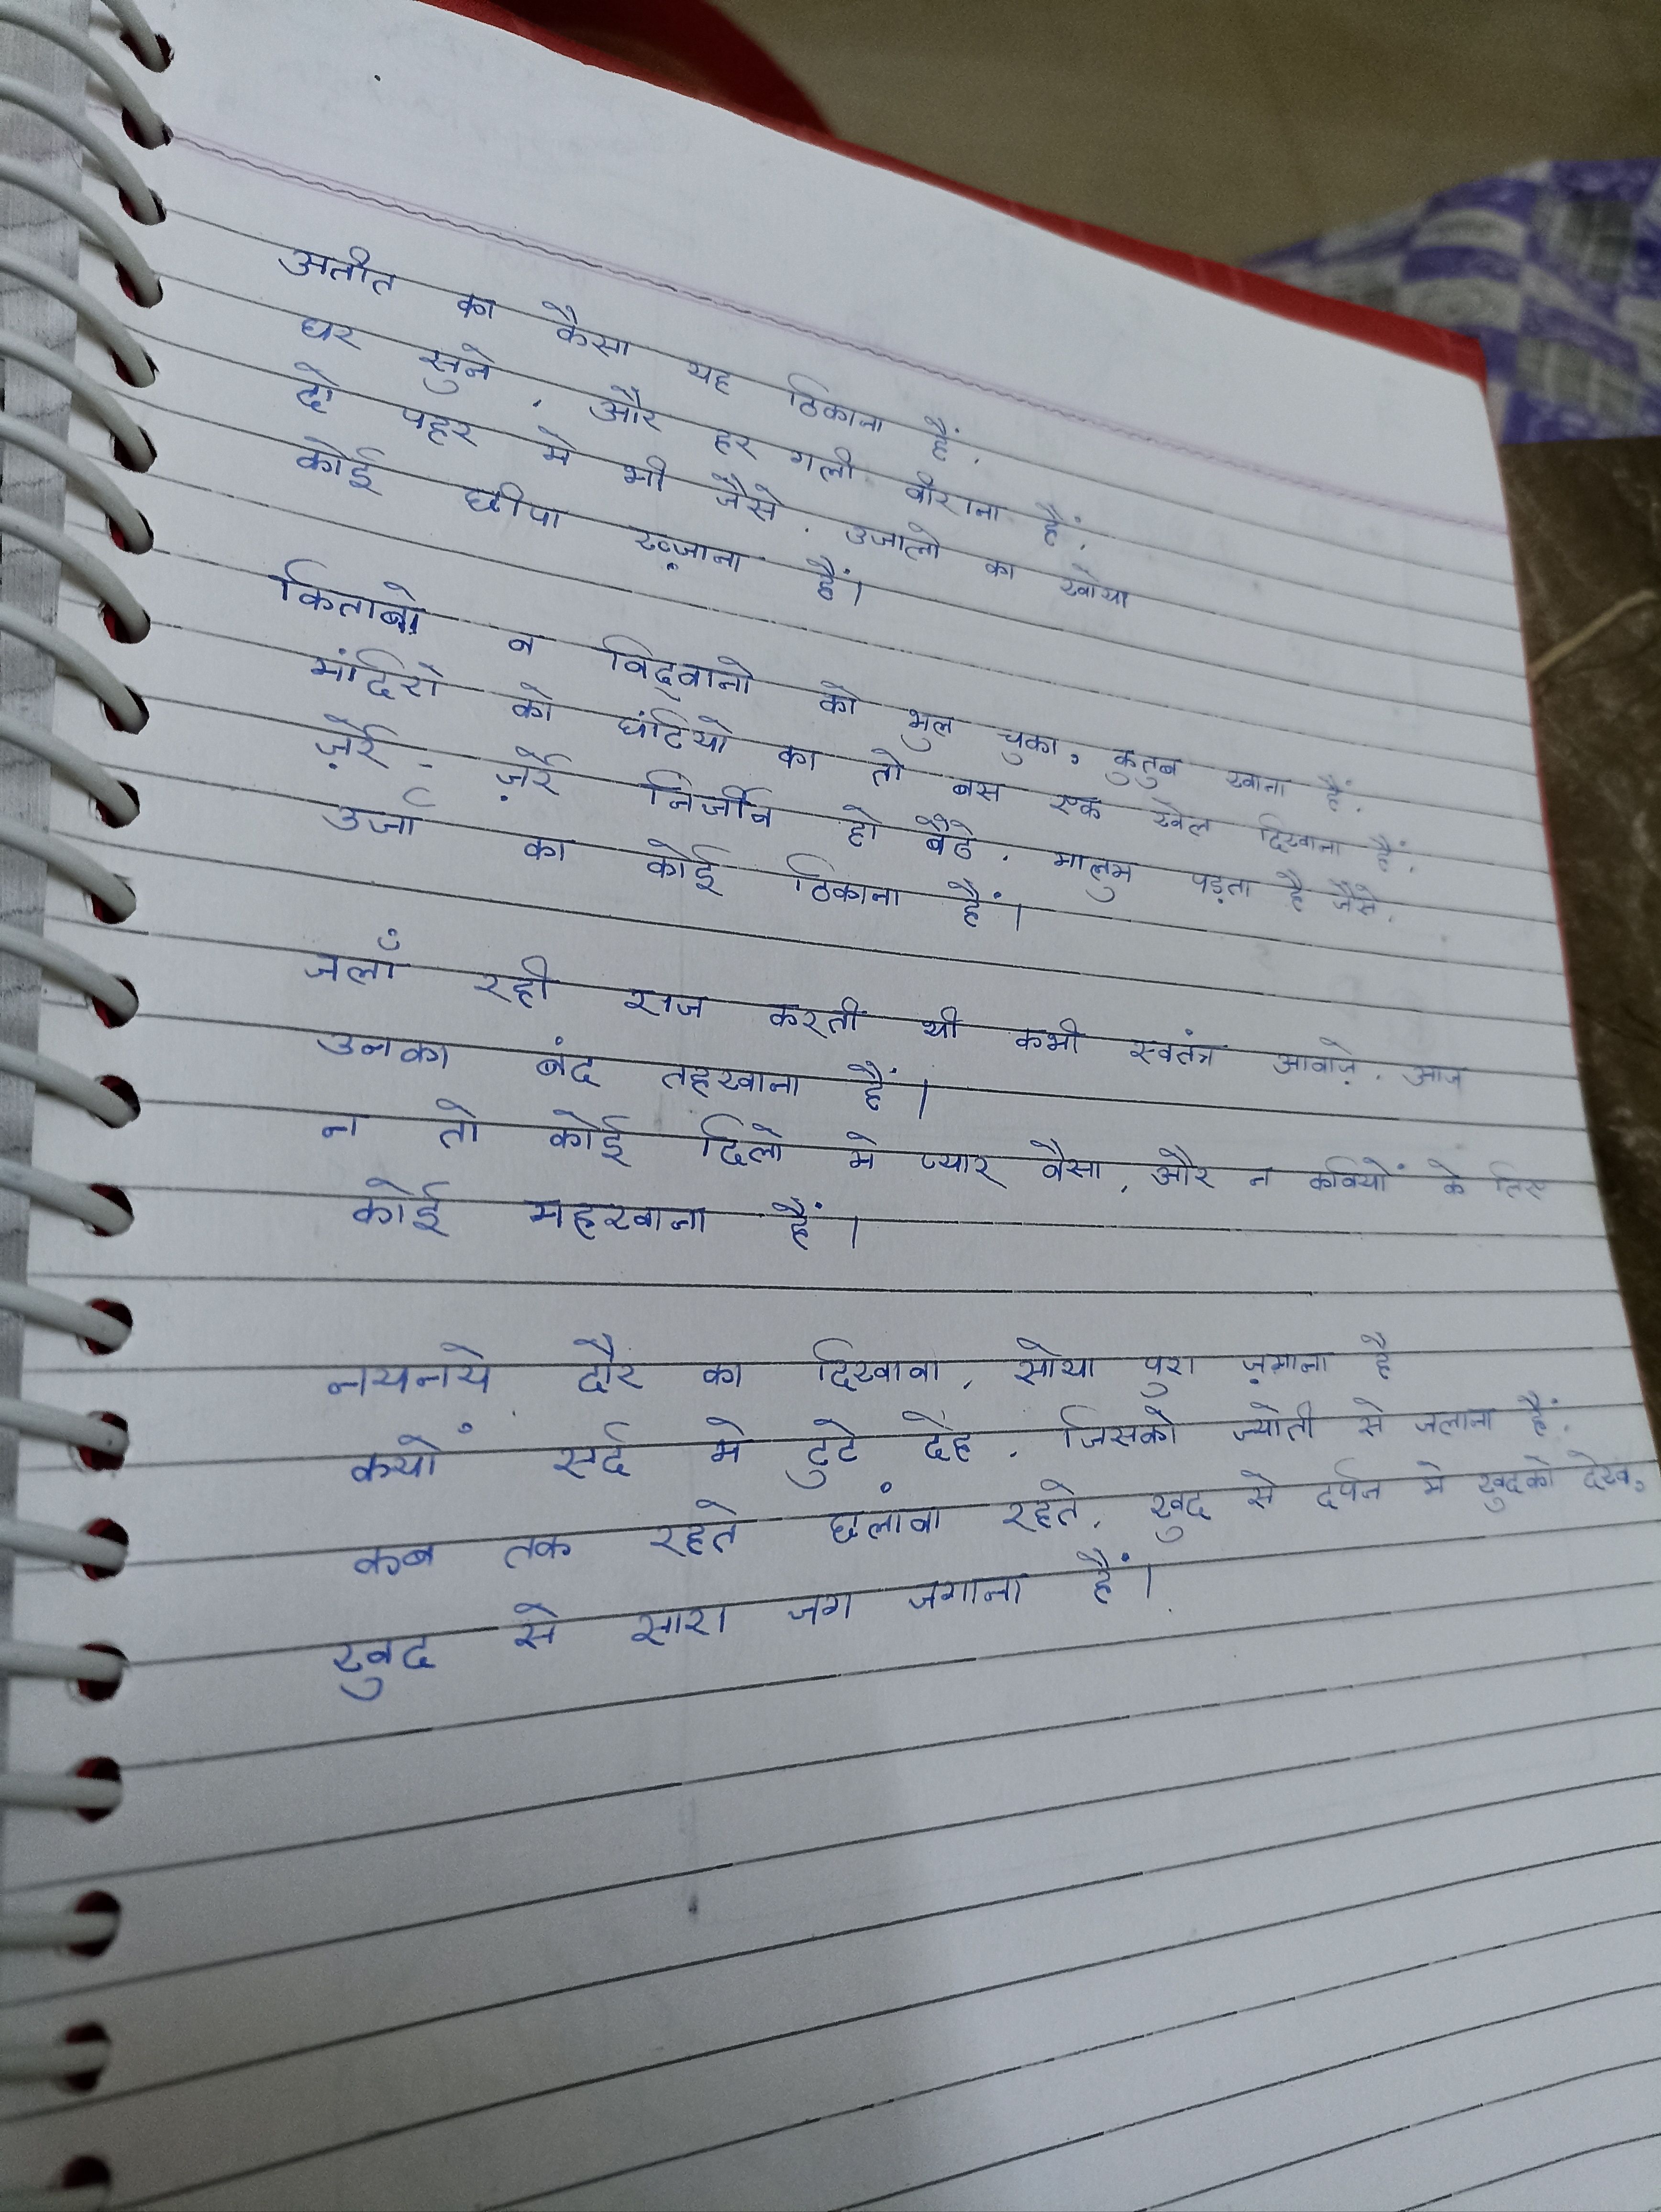 अतीत का कैसा यह ठिकाना हैं,
घर सुने, और हर गली वीराना हैं,
दो पहर मे भी जैसे, उजालो का खोया
कोई छीपा ख़्जाना हैं।
किताबो व विद्वानो को भुल चुका, कुतुब खाना हैं,
मंदिरो को घंटियो का तो बस एक खेल दिखाना हैं,
ज़र्रे - ज़र्रे निर्जीव हो बैठे, मालुम पड़ता है जैसे,
उर्जा का कोई ठिकाना हैं।
जलाँ रही राज करती थी कभी स्वतंत्र आवाज़े, आज
उनका बंद तहखाना हैं।
न तो कोई दिलो मे प्यार वैसा, और न कवियों के लिए
कोई महखाना हैं।
नयनये दौर का दिखावा, सोया पुरा ज़माना है
क्यों सर्द मे टुटे देह, जिसको ज्योती से जलाना हैं,
कब तक रहते छलांवा रहते, खुद से दर्पन मे खुदको देख,
खुद से सारा जग जगाना हैं।